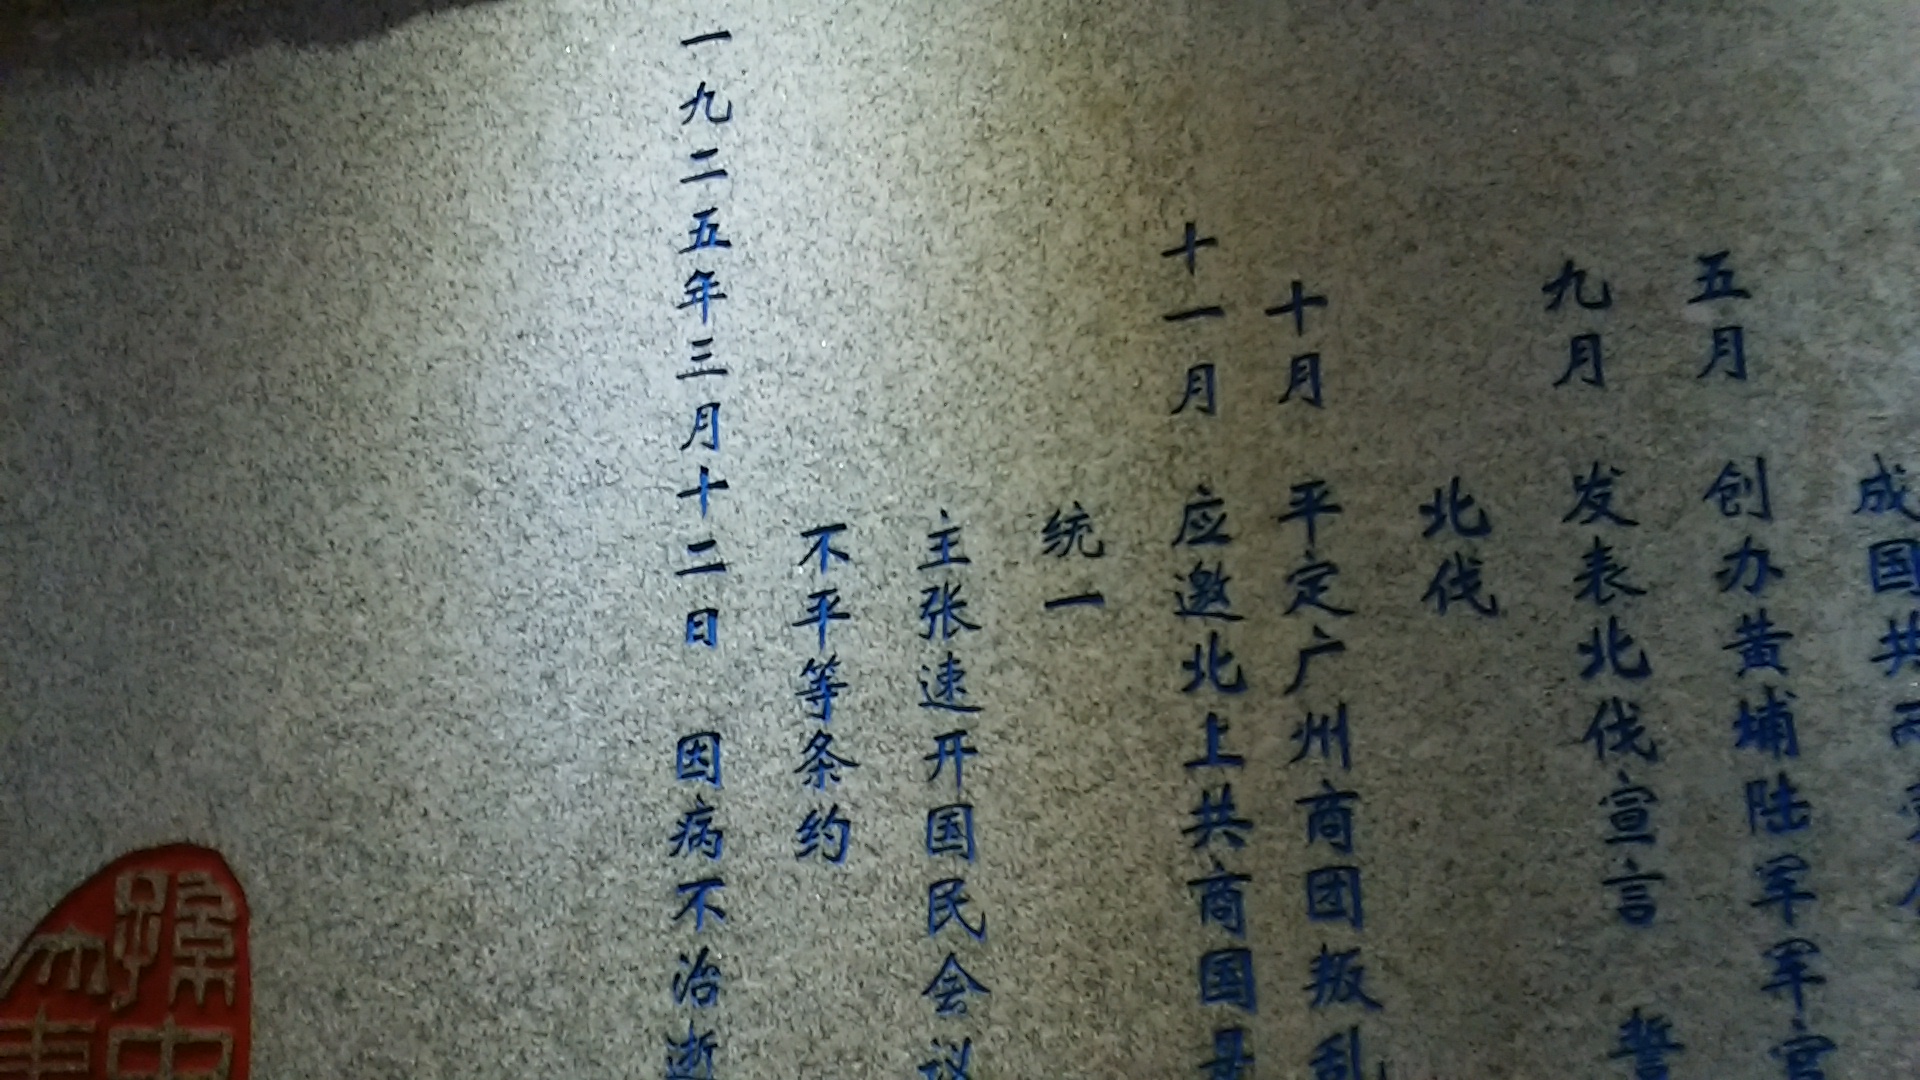 成国共两
五月 创办黄埔陆军军官
九月 发表北伐宣言 誓
北伐
十月 平定广州商团叛乱
十一月 应邀北上共商国是
统一
主张速开国民会议
不平等条约
一九二五年三月十二日 因病不治逝
孙中